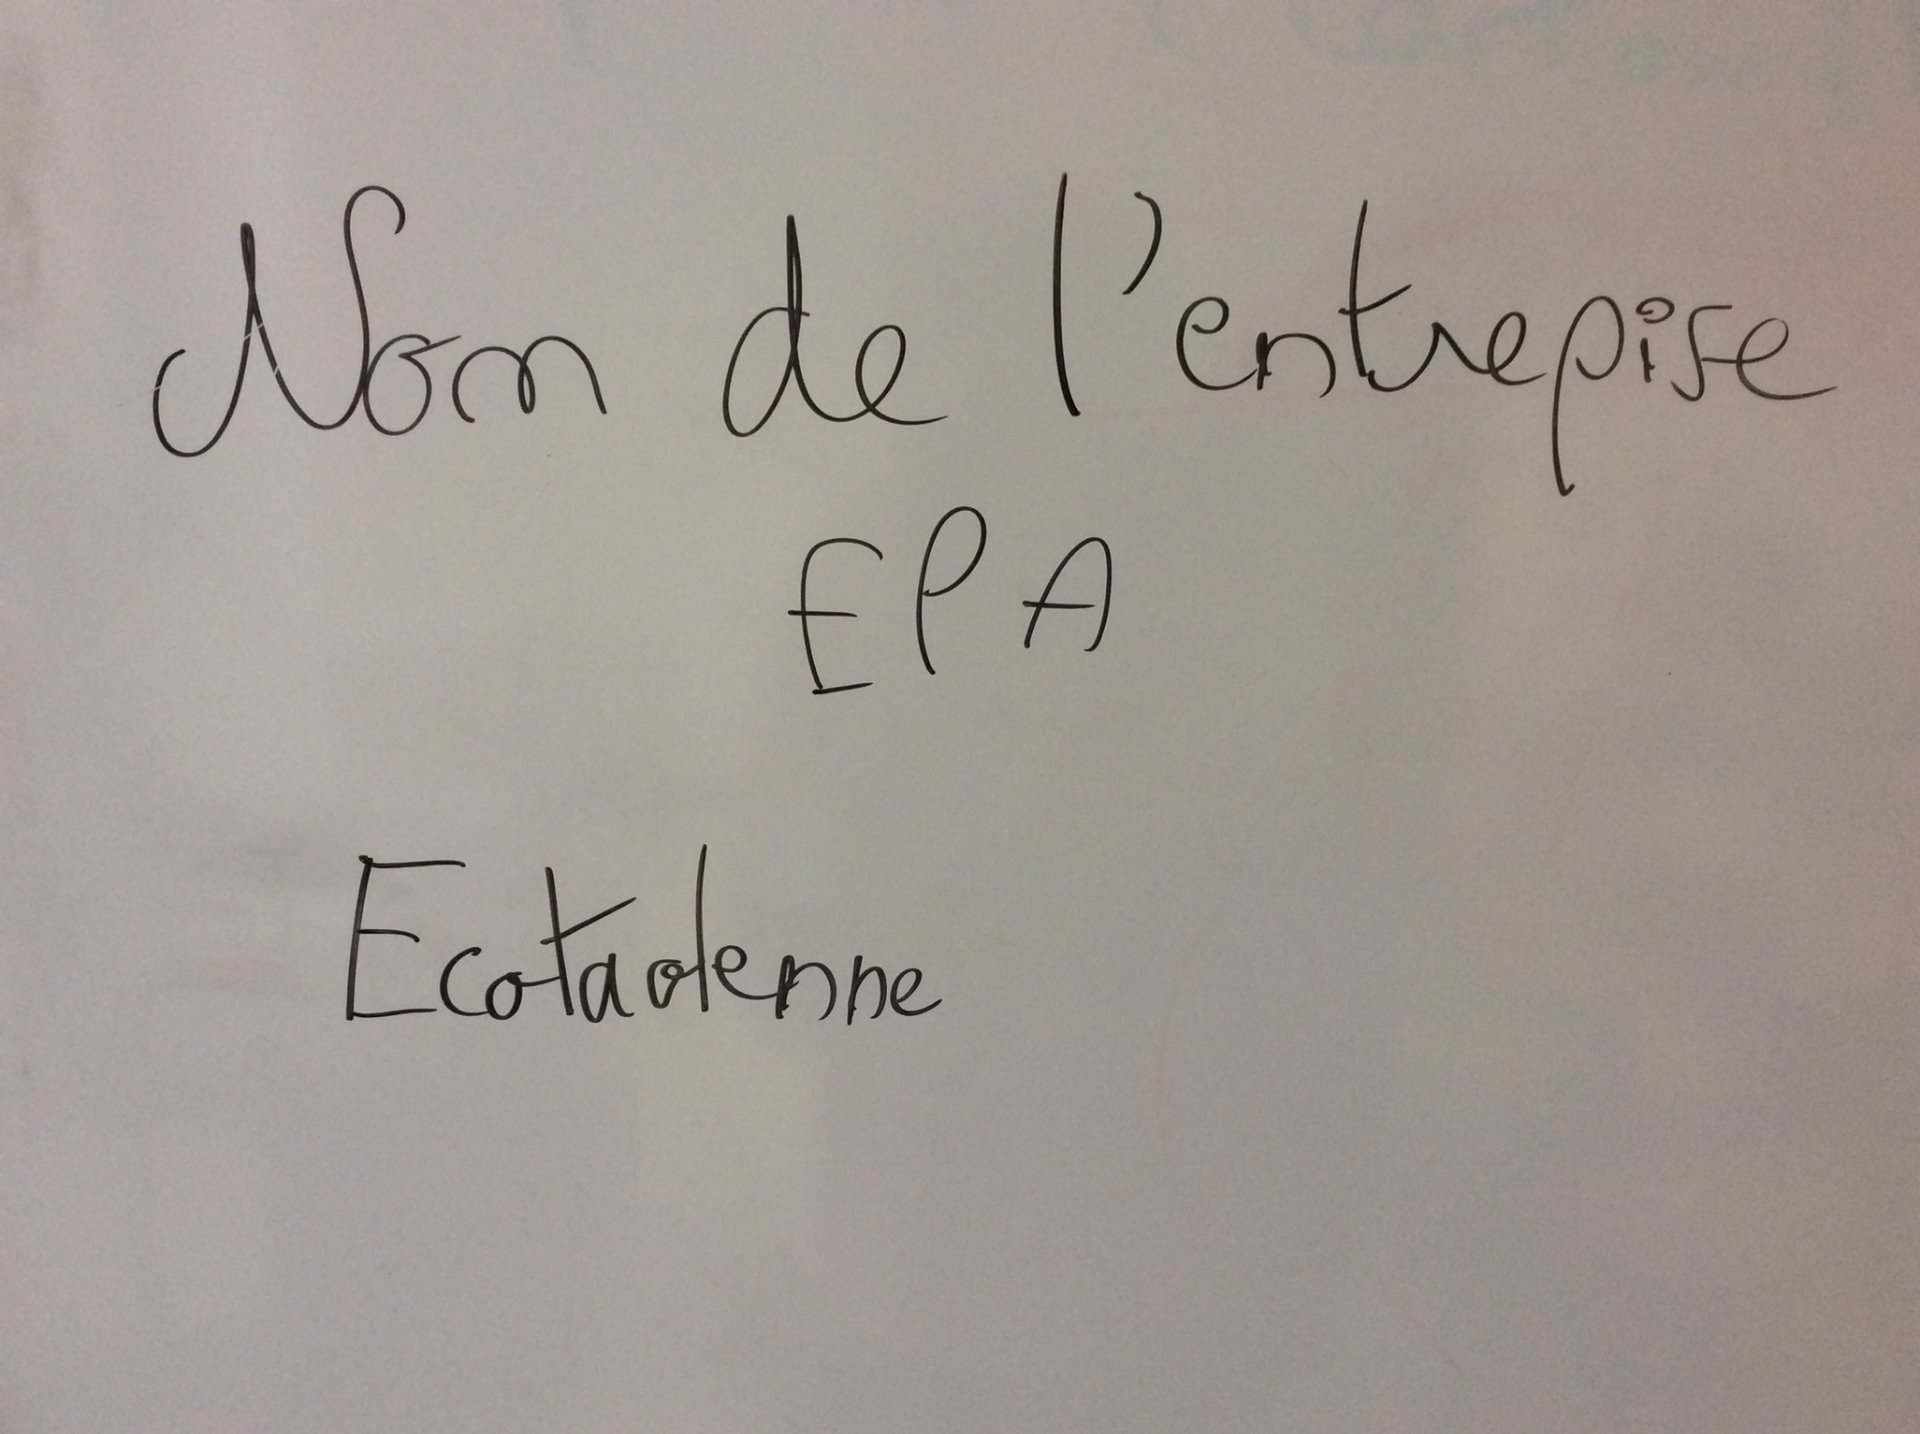 Nom de l'entrepise
EPA
Ecotadenne